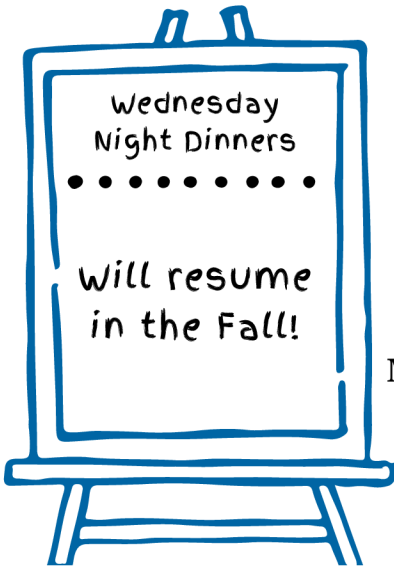 Wednesday
Night Dinners
Will resume
in the Fall!